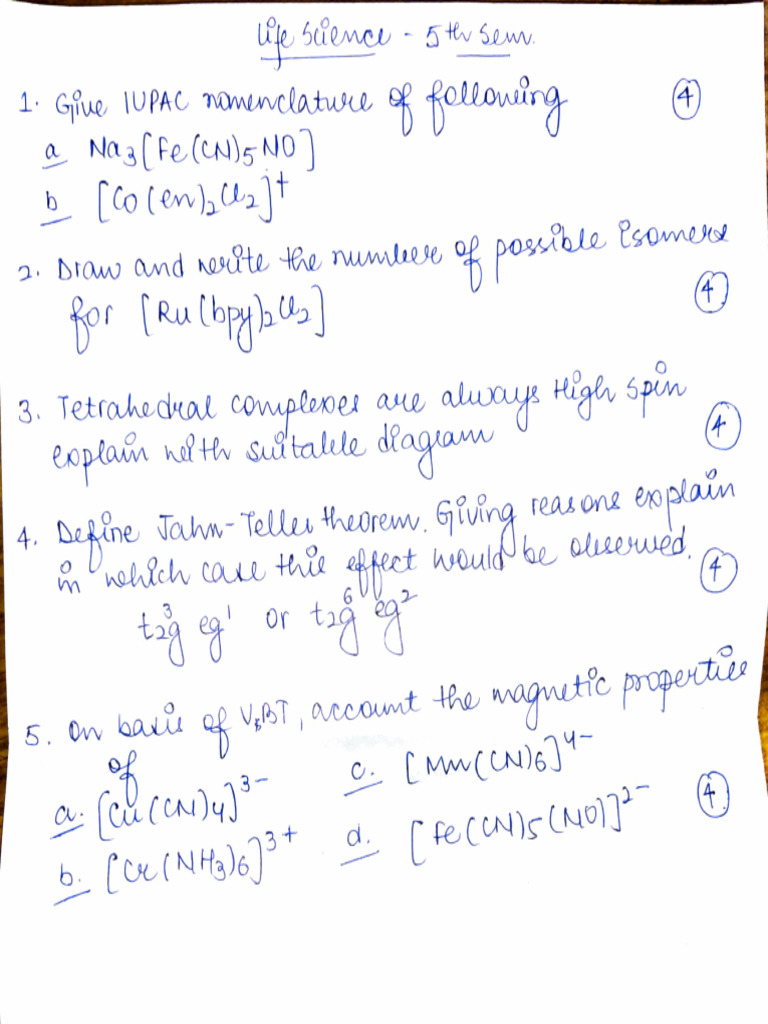 Life Science - 5th Sem.
1. Give IUPAC nomenclature of following (4)
a Na3[Fe(CN)5NO]
b [Co(en)2Cl2]+
2. Draw and write the number of possible isomers
for [Ru(bpy)2Cl2] (4)
3. Tetrahedral complexes are always High spin
explain with suitable diagram (4)
4. Define Jahn-Teller theorem. Giving reasons explain
in which case this effect would be observed. (4)
t2g3 eg1 or t2g6 eg2
5. On basis of VBT, account the magnetic properties
of
a. [Cu(CN)4]3- c. [Mn(CN)6]4- (4)
b. [Cr(NH3)6]3+ d. [Fe(CN)5(NO)]2-